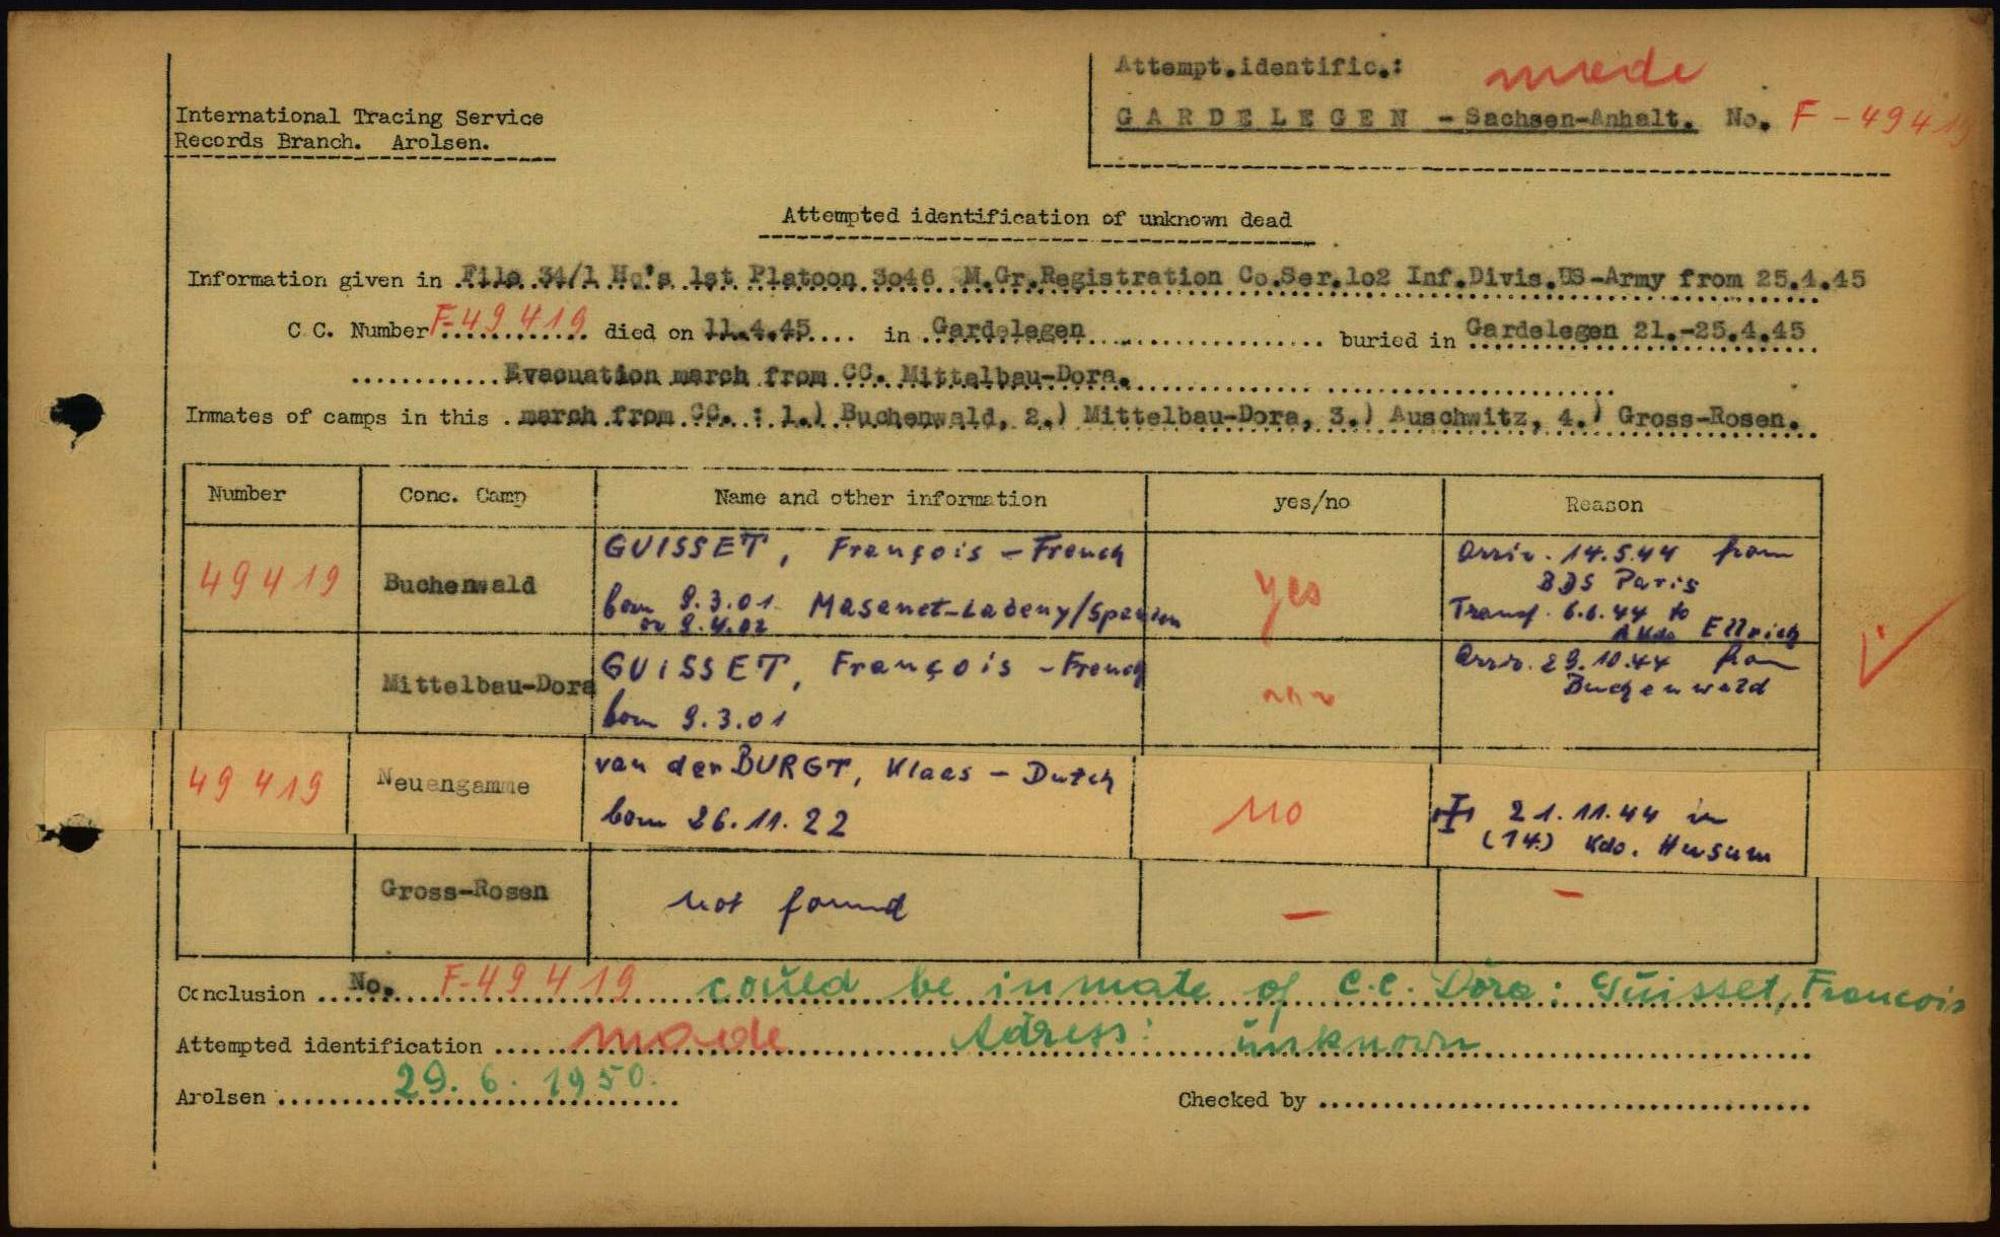 Attempt.identific.: made
International Tracing Service
GARDELEGEN - Sachsen-Anhalt. No. F-49419
Records Branch. Arolsen.
Attempted identification of unknown dead
Information given in File 34/1 Hq's 1st Platoon 3o46 M.Gr.Registration Co.Ser.1o2 Inf.Divis.US-Army from 25.4.45
C.C. Number F-49419 died on 11.4.45 in Gardelegen buried in Gardelegen 21.-25.4.45
Evacuation march from CC. Mittelbau-Dora.
Inmates of camps in this march from CC. : 1.) Buchenwald, 2.) Mittelbau-Dora, 3.) Auschwitz, 4.) Gross-Rosen.
Number Conc. Camp Name and other information yes/no Reason
GUISSET, François - French Arriv. 14.5.44 from
49419 Buchenwald yes BDS Paris
born 9.3.01 Masanet-Labeny/Spanien Transf. 6.6.44 to
or 9.4.02 AKdo Ellrich
GUISSET, François - French Arriv. 29.10.44 from
Mittelbau-Dora Buchenwald
born 9.3.01
van der BURGT, Klaas - Dutch
49419 Neuengamme no
born 26.11.22 21.11.44 in
(14.) Kdo. Husum
Gross-Rosen not found - -
Conclusion No. F-49419 could be inmate of C.C. Dora: Guisset, Francois
Attempted identification made Adress: unknown
Arolsen 29.6.1950. Checked by